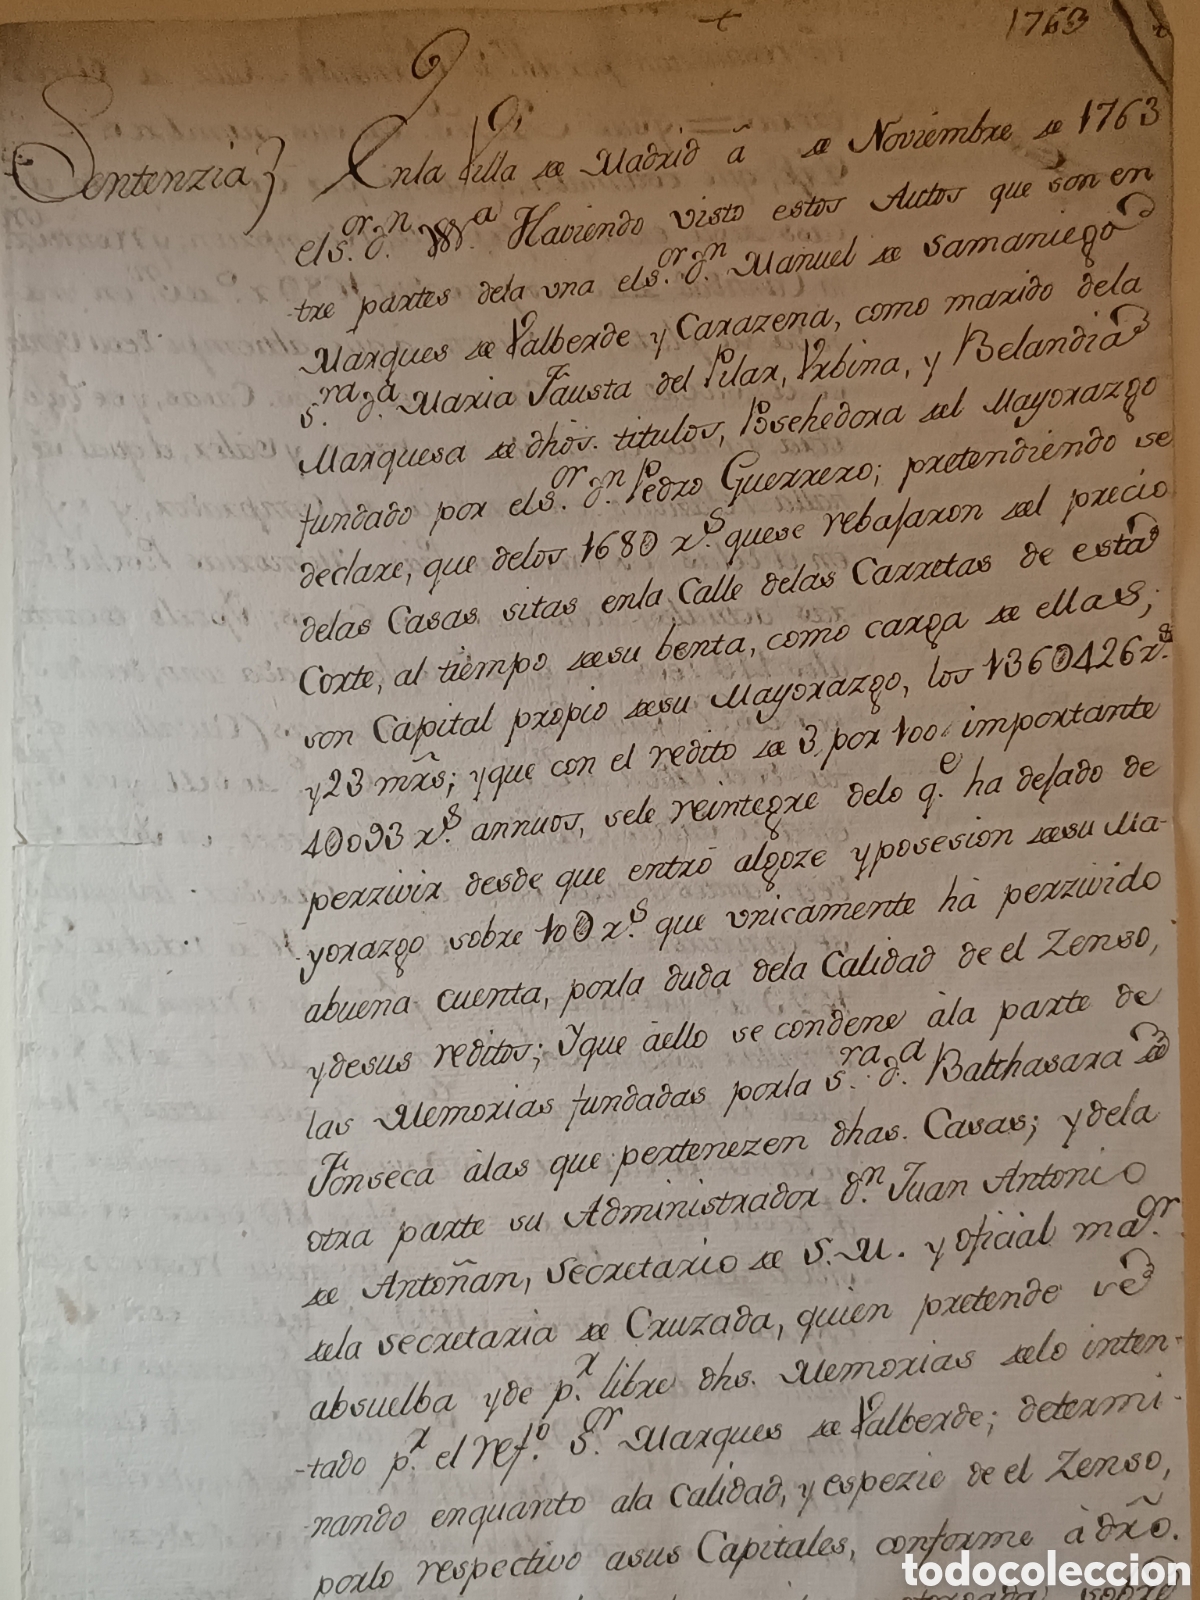 1763
Sentenzia} En la Villa de Madrid â de Noviembre de 1763
el s.or d.n Haviendo visto estos Autos que son en
tre partes dela una el s.or d.n Manuel de Samaniego
Marques de Valberde y Carazena, como marido dela
s.ra d.a Maria Fausta del Pilar, Vrbina, y Belandia
Marquesa de dhos. titulos, Posehedora del Mayorazgo
fundado por el s.or d.n Pedro Guerrero; pretendiendo se
declare, que delos 1680 r.s que se rebajaron del precio
delas Casas sitas enla Calle delas Carretas de esta
Corte, al tiempo de su benta, como carga de ellas;
son Capital propio de su Mayorazgo, los 1360426 r.s
y 23 mrs; y que con el redito de 3 por 100 importante
40093 r.s annuos, sele reintegre delo q.e ha dejado de
perzivir desde que entró algoze y posesion de su Ma-
yorazgo sobre 100 r.s que unicamente hà perzivido
abuena cuenta, porla duda dela Calidad de el Zenso,
y desus reditos; Y que àello se condene àla parte de
las Memorias fundadas porla s.ra d.a Balthasara de
Fonseca àlas que pertenezen dhas. Casas; y dela
otra parte su Administrador d.n Juan Antonio
de Antoñan, Secretario de S.M. y oficial ma.or
dela secretaria de Cruzada, quien pretende se
absuelba y de p.r libre dhs. Memorias delo inten-
-tado p.r el ref.o S.or Marques de Valberde; determi-
nando enquanto ala Calidad, y espezie de el Zenso,
porlo respectivo asus Capitales, conforme à dro.
sobre
todocoleccion